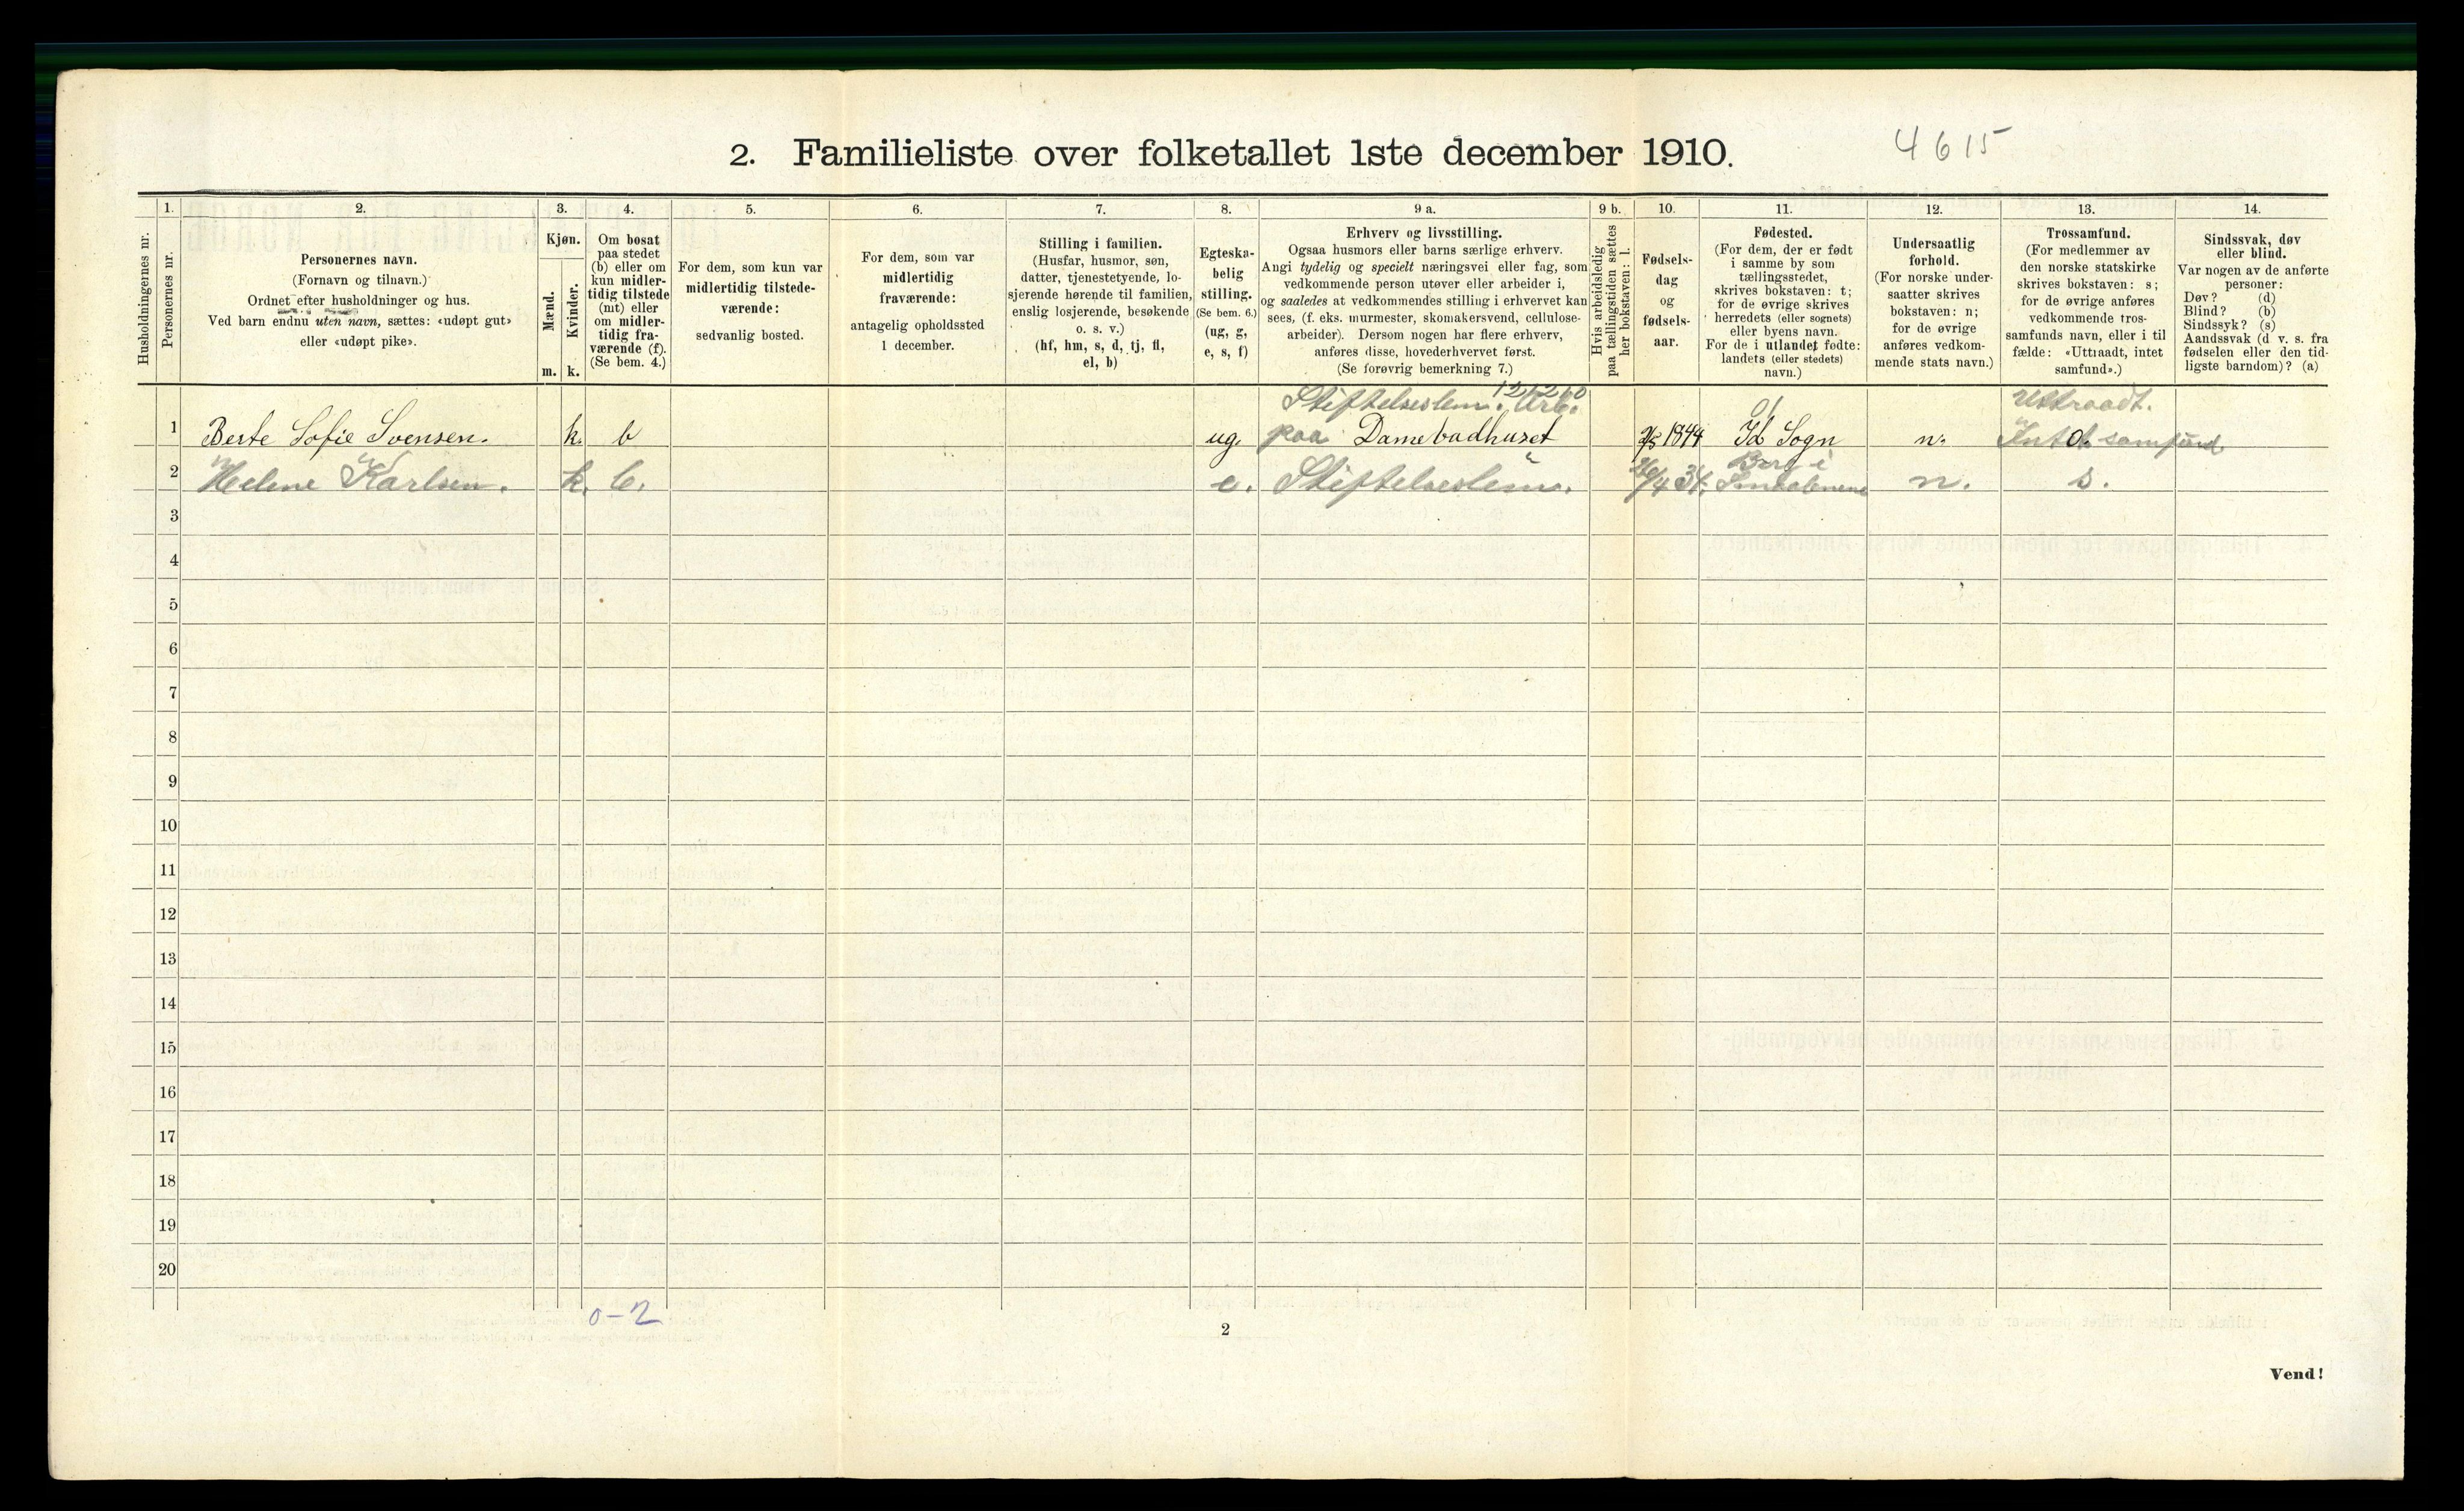 4615
2. Familieliste over folketallet 1ste december 1910.
1. 2. 3. 4. 5. 6. 7. 8. 9 a. 9 b. 10. 11. 12. 13. 14.
Husholdningernes nr.
Personernes nr.
Personernes navn.
(Fornavn og tilnavn.)
Ordnet efter husholdninger og hus.
Ved barn endnu uten navn, sættes: «udøpt gut»
eller «udøpt pike».
Kjøn.
Mænd.
Kvinder.
m. k.
Om bosat
paa stedet
(b) eller om
kun midler-
tidig tilstede
(mt) eller
om midler-
tidig fra-
værende (f).
(Se bem. 4.)
For dem, som kun var
midlertidig tilstede-
værende:
sedvanlig bosted.
For dem, som var
midlertidig
fraværende:
antagelig opholdssted
1 december.
Stilling i familien.
(Husfar, husmor, søn,
datter, tjenestetyende, lo-
sjerende hørende til familien,
enslig losjerende, besøkende
o. s. v.)
(hf, hm, s, d, tj, fl,
el, b)
Egteska-
belig
stilling.
(Se bem. 6.)
(ug, g,
e, s, f)
Erhverv og livsstilling.
Ogsaa husmors eller barns særlige erhverv.
Angi tydelig og specielt næringsvei eller fag, som
vedkommende person utøver eller arbeider i,
og saaledes at vedkommendes stilling i erhvervet kan
sees, (f. eks. murmester, skomakersvend, cellulose-
arbeider). Dersom nogen har flere erhverv,
anføres disse, hovederhvervet først.
(Se forøvrig bemerkning 7.)
Hvis arbeidsledig
paa tællingstiden sættes
her bokstaven: l.
Fødsels-
dag
og
fødsels-
aar.
Fødested.
(For dem, der er født
i samme by som
tællingsstedet,
skrives bokstaven: t;
for de øvrige skrives
herredets (eller sognets)
eller byens navn.
For de i utlandet fødte:
landets (eller stedets)
navn.)
Undersaatlig
forhold.
(For norske under-
saatter skrives
bokstaven: n;
for de øvrige
anføres vedkom-
mende stats navn.)
Trossamfund.
(For medlemmer av
den norske statskirke
skrives bokstaven: s;
for de øvrige anføres
vedkommende tros-
samfunds navn, eller i til-
fælde: «Uttraadt, intet
samfund».)
Sindssvak, døv
eller blind.
Var nogen av de anførte
personer:
Døv? (d)
Blind? (b)
Sindssyk? (s)
Aandssvak (d v. s. fra
fødselen eller den tid-
ligste barndom)? (a)
Stiftelseslem. Arb. Uttraadt.
1 Berte Sofie Svensen. k. b ug. paa Damebadhuset 1844 Id Sogn n. Intet samfund
Berg i
2 Helene Karlsen. k. b. e. Stiftelseslem. 26/4 34. Smaalenene n. s.
3
4
5
6
7
8
9
10
11
12
13
14
15
16
17
18
19
20
0-2
2
Vend!